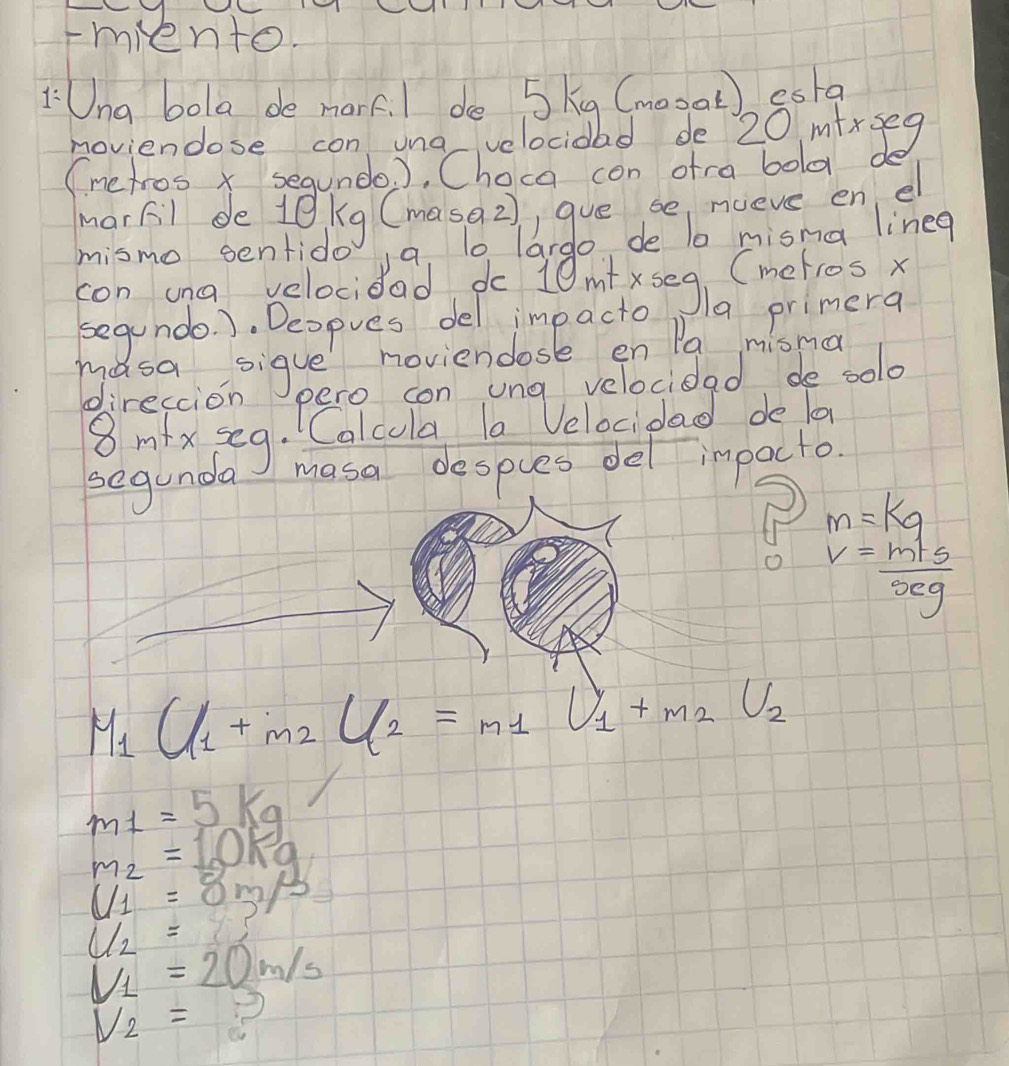 -miento.
1: Una bola de marfil de 5 Kg (masa1) esta
moviendose con una velocidad de 20 mtxseg
(metros x segundo.). Choca con otra bola de
marfil de 10 Kg (masa2), que se mueve en el
mismo sentido, a lo largo de la misma linea
con una velocidad de 10 mtxseg (metros x
segundo.). Despues del impacto la primera
masa sigue moviendose en la misma
dirección pero con una velocidad de solo
8 mtx seg. Calcula la Velocidad de la
segunda masa despues del impacto.
? m = Kg
v = mts
seg
M1 U1 + m2 U2 = m1 V1 + m2 U2
m1 = 5 Kg
m2 = 10Kg
U1 = 8 m/s
U2 = ?
V1 = 20 m/s
V2 = ?